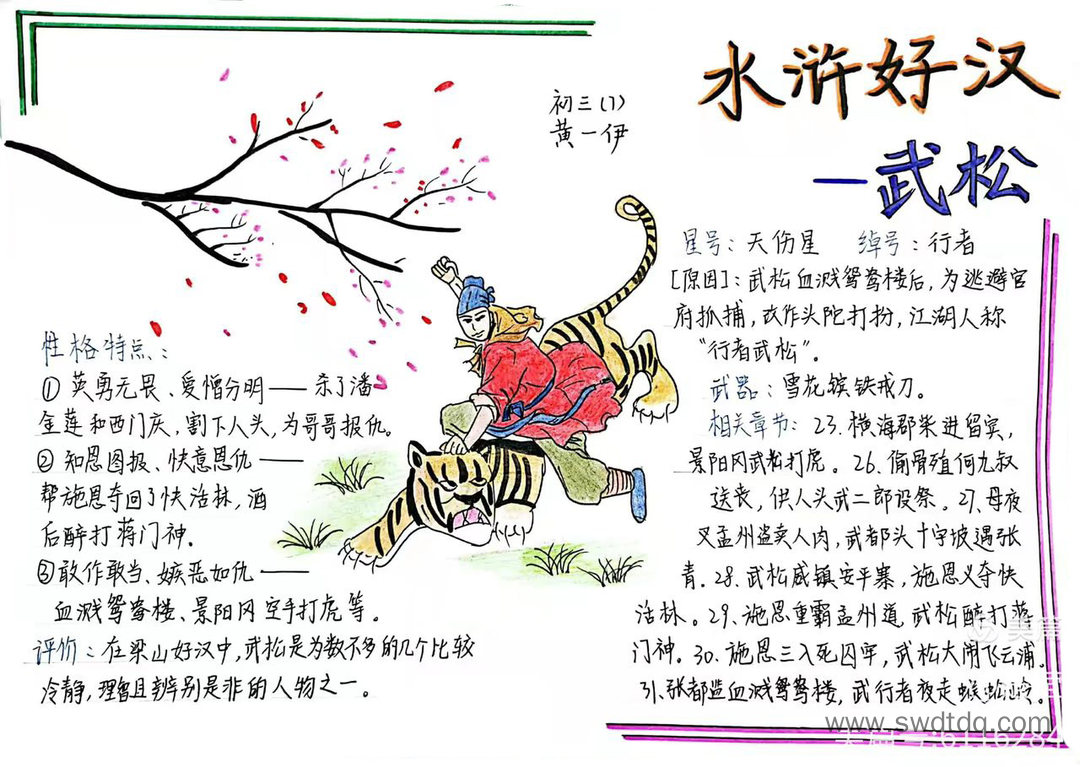 水浒好汉
—武松
初三(1)
黄一伊
星号：天伤星 绰号：行者
[原因]：武松血溅鸳鸯楼后，为逃避官
府抓捕，改作头陀打扮，江湖人称
“行者武松”。
武器：雪花镔铁戒刀。
相关章节：23.横海郡柴进留宾，
景阳冈武松打虎。26.偷骨殖何九叔
送丧，供人头武二郎设祭。27.母夜
叉孟州盗卖人肉，武都头十字坡遇张
青。28.武松威镇安平寨，施恩义夺快
活林。29.施恩重霸孟州道，武松醉打蒋
门神。30.施恩三入死囚牢，武松大闹飞云浦。
31.张都监血溅鸳鸯楼，武行者夜走蜈蚣岭。
性格特点：
①英勇无畏、爱憎分明——杀了潘
金莲和西门庆，割下人头，为哥哥报仇。
②知恩图报、快意恩仇——
帮施恩夺回了快活林，酒
后醉打蒋门神。
③敢作敢当、嫉恶如仇——
血溅鸳鸯楼、景阳冈空手打虎等。
评价：在梁山好汉中，武松是为数不多的几个比较
冷静，理智且辨别是非的人物之一。
美篇
www.swdtdq.com